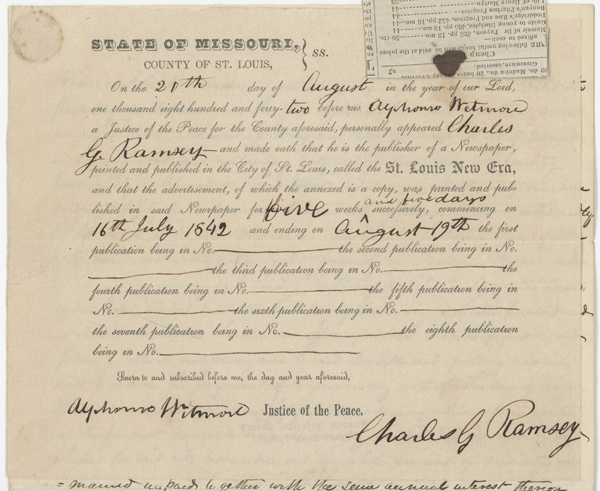 STATE OF MISSOURI, } ss.
COUNTY OF ST. LOUIS,
On the 20th day of August in the year of our Lord,
one thousand eight hundred and forty-two before me Alphonso Wetmore
a Justice of the Peace for the County aforesaid, personally appeared Charles
G. Ramsey and made oath that he is the publisher of a Newspaper,
printed and published in the City of St. Louis, called the St. Louis New Era,
and that the advertisement, of which the annexed is a copy, was printed and pub-
lished in said Newspaper for five weeks and five days successively, commencing on
16th July 1842 and ending on August 19th the first
publication being in No. the second publication being in No.
the third publication being in No. the
fourth publication being in No. the fifth publication being in
No. the sixth publication being in No.
the seventh publication being in No. the eighth publication
being in No.
Sworn to and subscribed before me, the day and year aforesaid,
Alphonso Wetmore Justice of the Peace.
Charles G Ramsey
with the same annual interest thereon